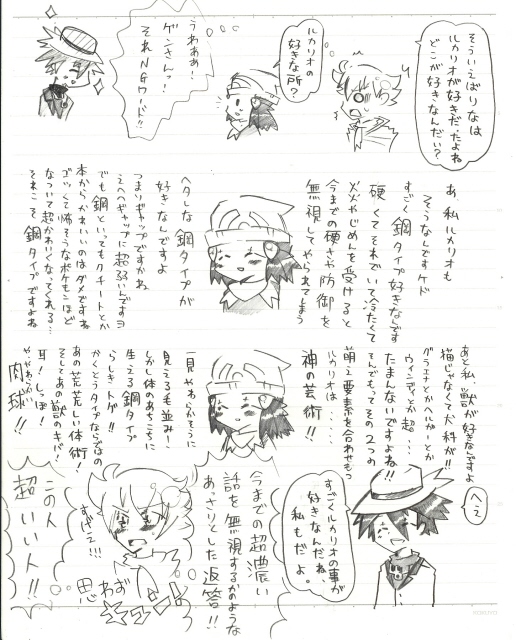 そういえばりなは
ルカリオが好きだったよね
どこが好きなんだい？
ルカリオの
好きな所？
うわああ！
ゲンさんっ！
それNGワード!!
あ、私ルカリオも
そうなんですケド
すごく鋼タイプ好きなんです
硬くてそれでいて冷たくて
炎やじめんを受けると
今までの硬さや防御を
無視してやられてしまう
ヘタレな鋼タイプが
好きなんですよ
つまりギャップですかね
えへへギャップに超弱いんですヨ
でも鋼といってもクチートとか
本からかわいいのはダメですね
ゴッくて怖そうなポケモンほど
なついて超かわいくなってくれる…
それこそ鋼タイプですよね
あと私、獣が好きなんですよ
猫じゃなくて犬科が!!
グラエナとかヘルガーとか
ウィンディとか超…
たまんないですよね!!
そんでもってその2つの
萌え要素を合わせもつ
ルカリオは……
神の芸術!!
一見やわらかそうに
見える毛並み！
しかし体のあちこちに
生える鋼タイプ
らしきトゲ!!
かくとうタイプならではの
あの荒荒しい体術！
そしてあの獣のキバ！
耳！しっぽ！
やわらかい
肉球!!
へぇ
すごくルカリオの事が
好きなんだね、
私もだよ。
今までの超濃い
話を無視するかのような
あっさりとした返答!!
すげぇ!!!
思わず
この人
超いい人!!